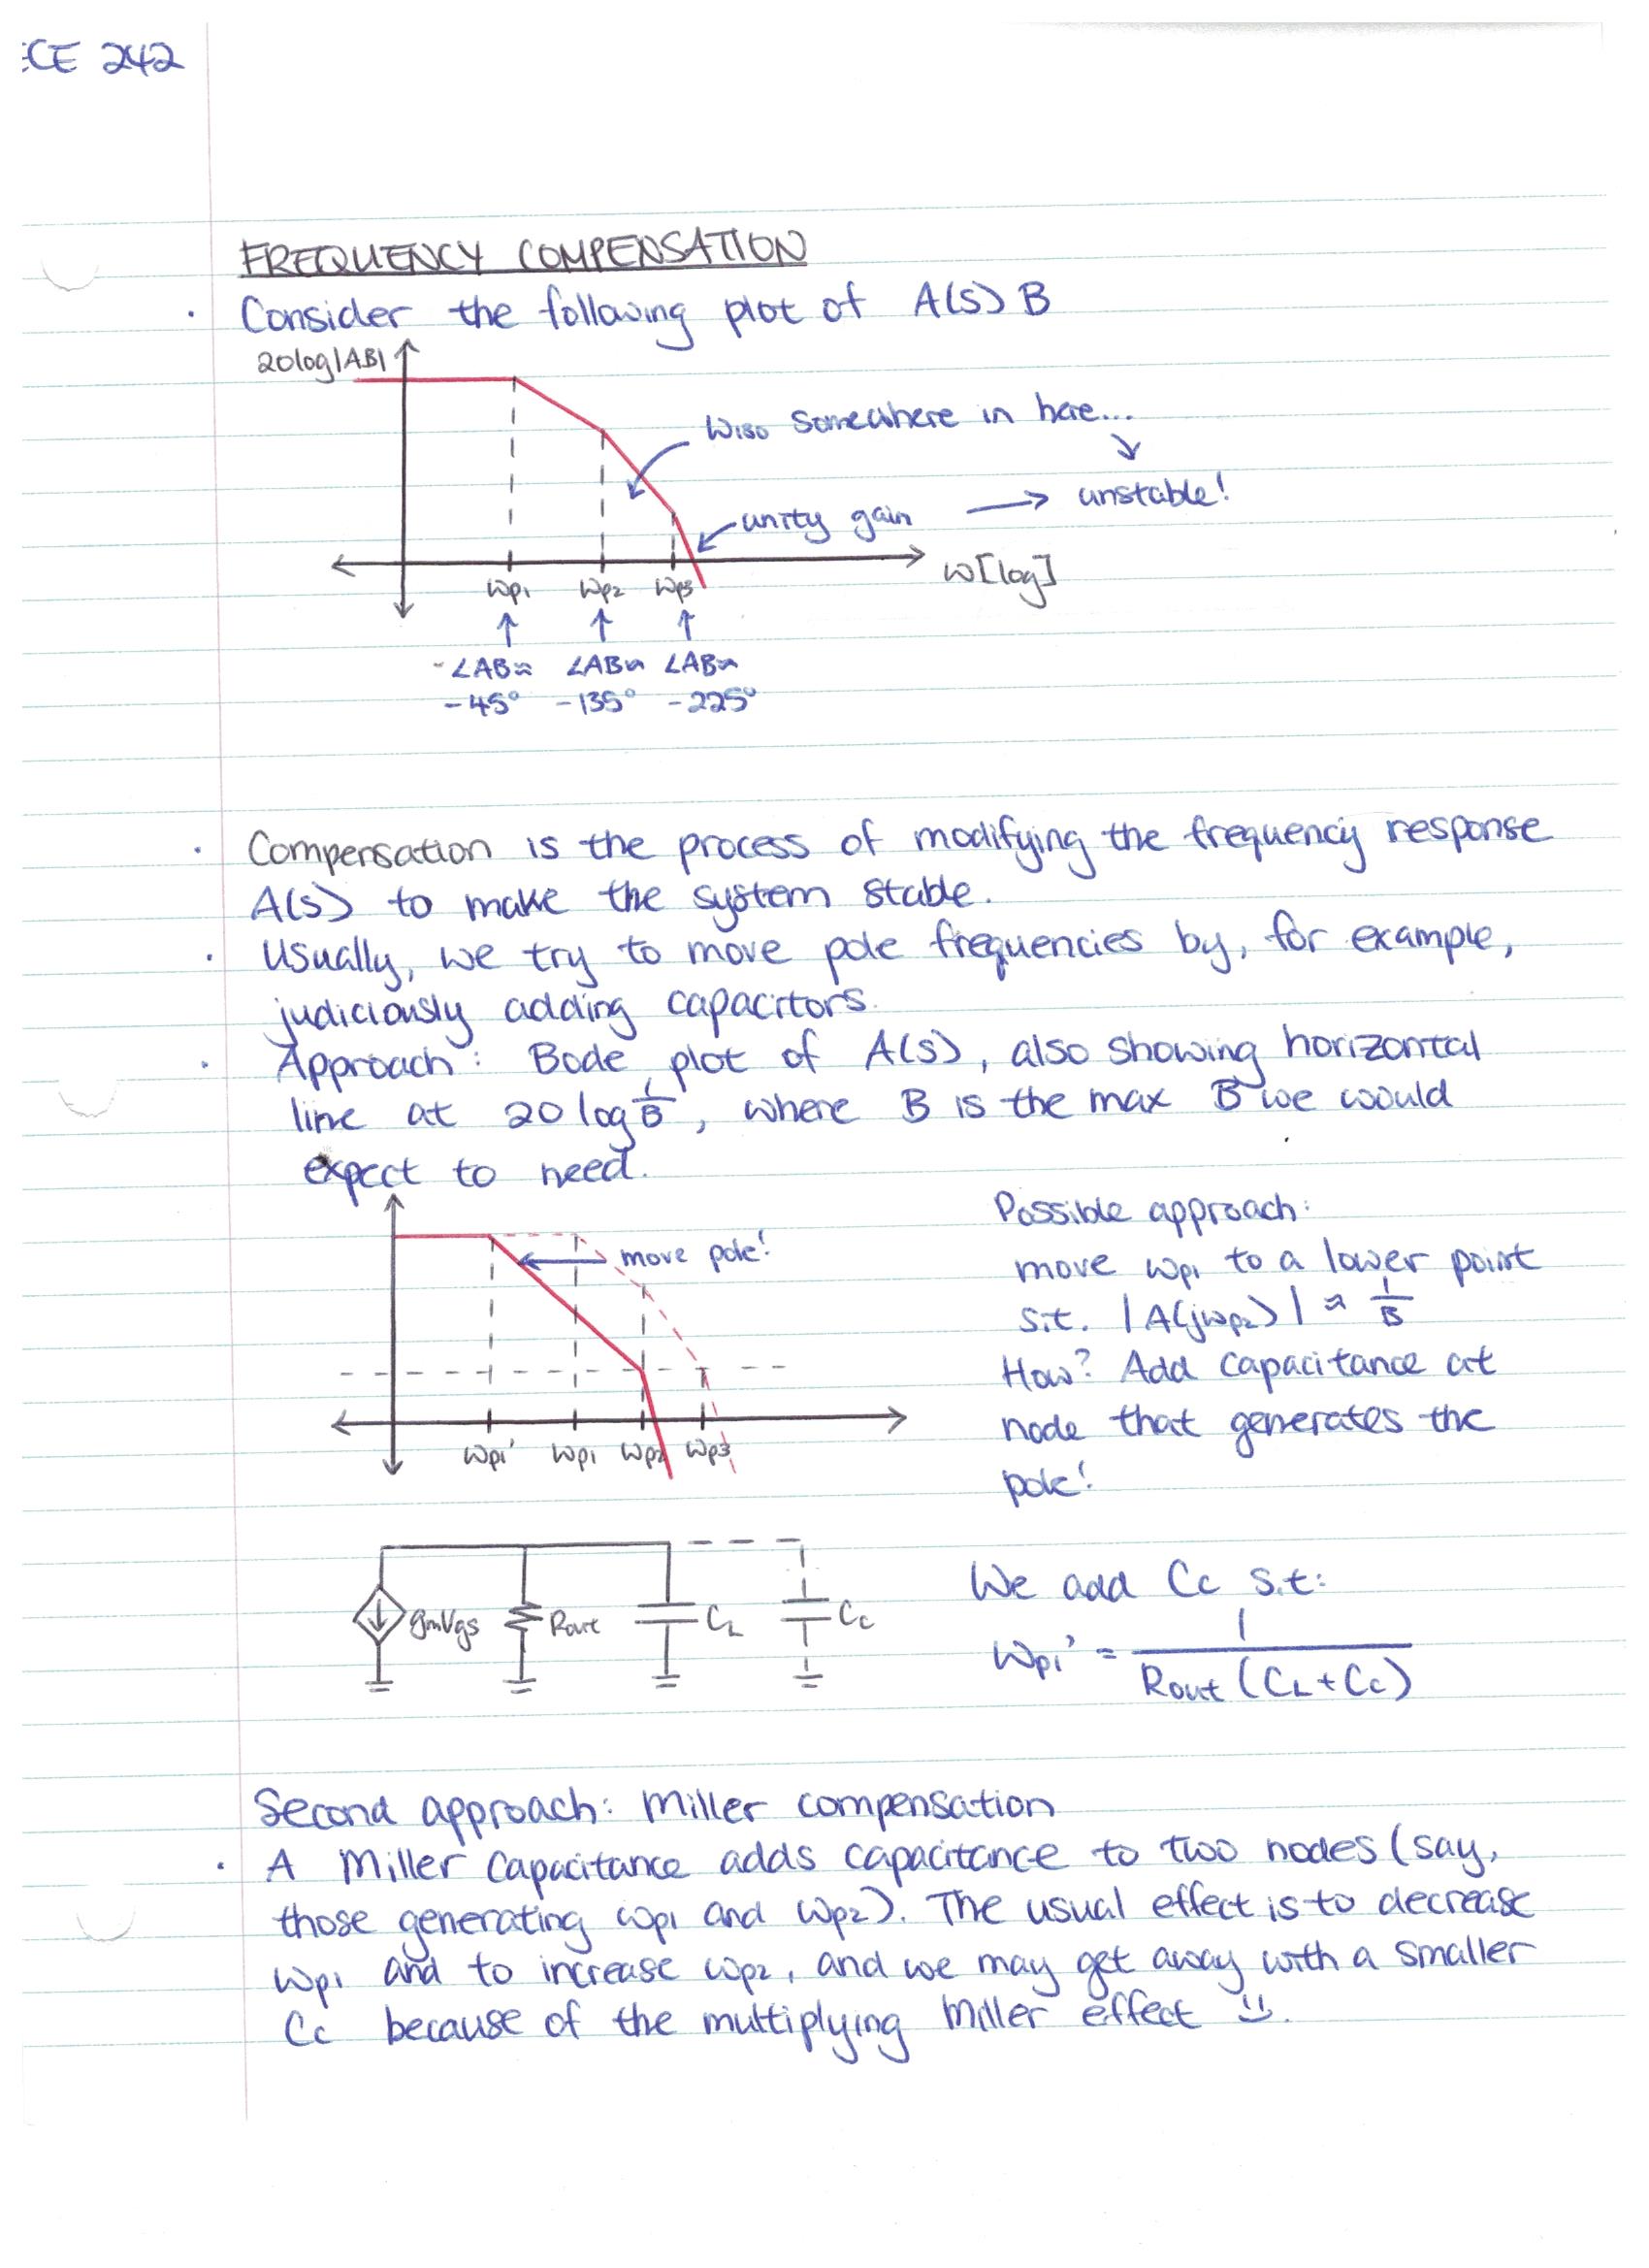 ECE 242
FREQUENCY COMPENSATION
· Consider the following plot of A(s) B
20log|AB|
ω180 somewhere in here...
unity gain → unstable!
ω[log]
ωp1 ωp2 ωp3
∠AB≈ ∠AB≈ ∠AB≈
-45° -135° -225°
· Compensation is the process of modifying the frequency response
A(s) to make the system stable.
· Usually, we try to move pole frequencies by, for example,
judiciously adding capacitors.
· Approach: Bode plot of A(s), also showing horizontal
line at 20 log 1/B, where B is the max B we would
expect to need.
move pole!
ωp1' ωp1 ωp2 ωp3
Possible approach:
move ωp1 to a lower point
s.t. |A(jωp2)| ≈ 1/B
How? Add capacitance at
node that generates the
pole!
gmVgs Rout CL Cc
We add Cc s.t:
ωp1' = 1/(Rout (CL+Cc))
Second approach: Miller compensation
· A Miller Capacitance adds capacitance to two nodes (say,
those generating ωp1 and ωp2). The usual effect is to decrease
ωp1 and to increase ωp2, and we may get away with a smaller
Cc because of the multiplying Miller effect ☺.